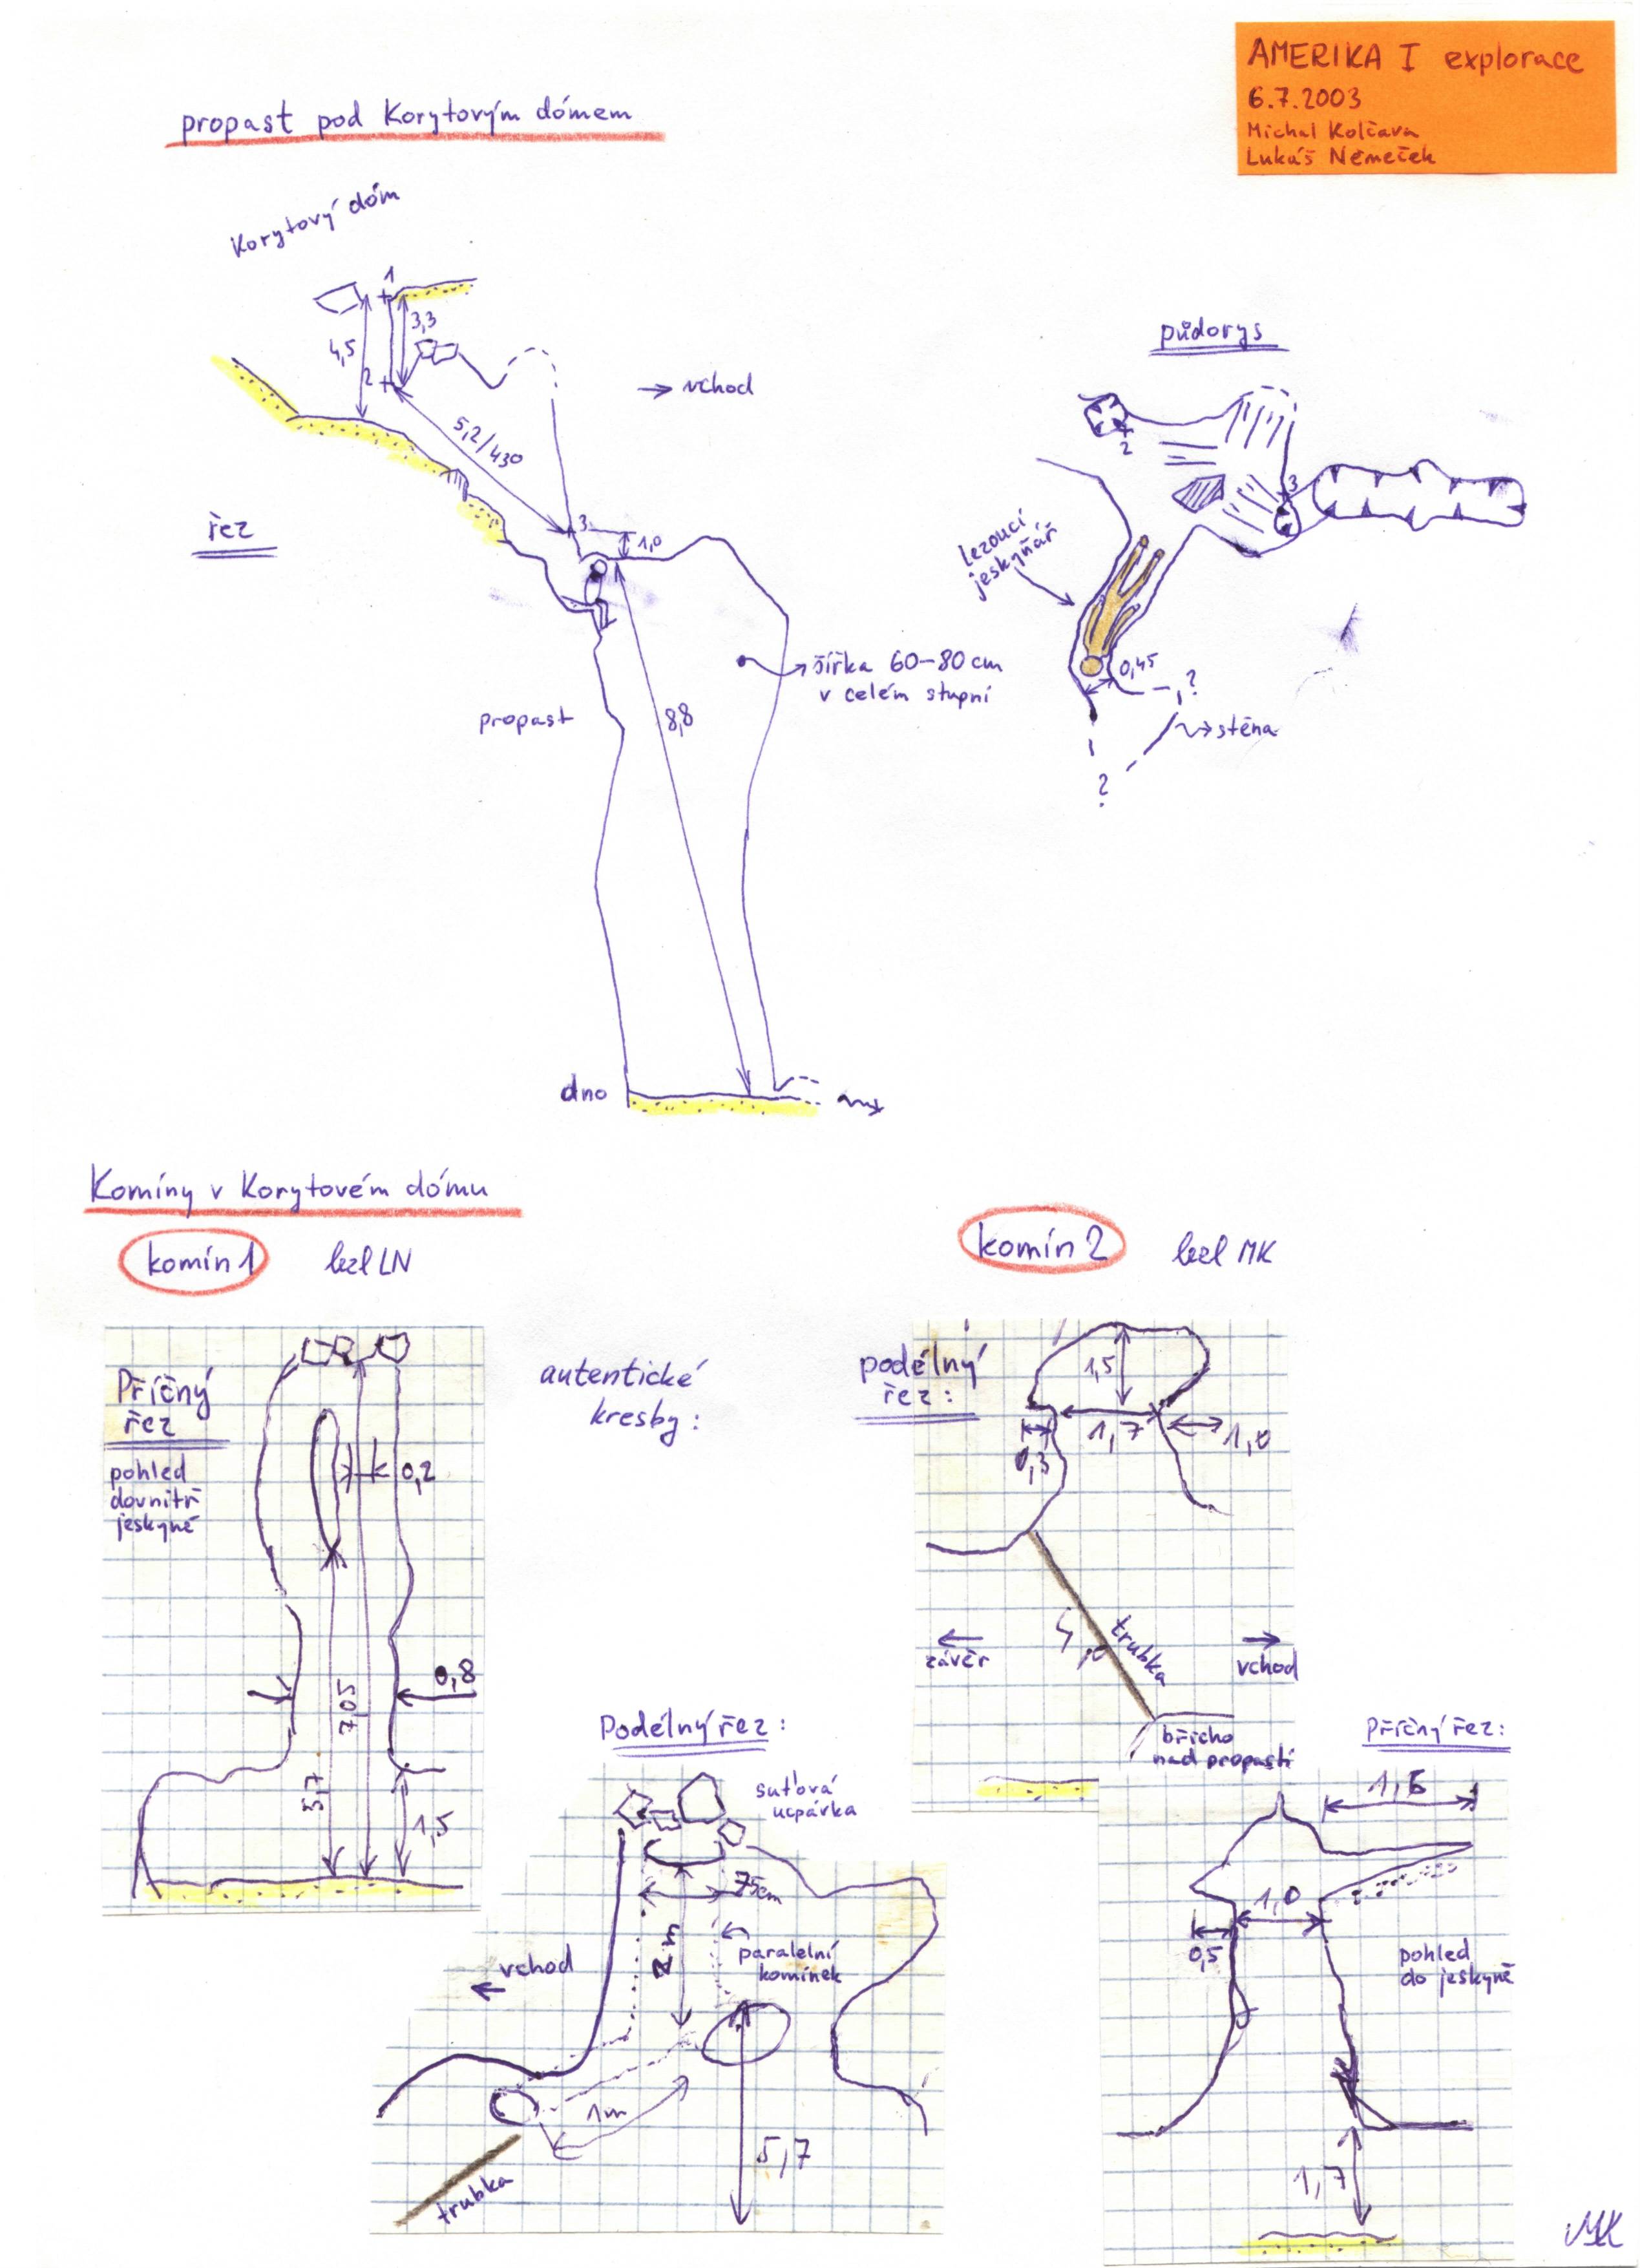 AMERIKA I explorace
6.7.2003
Michal Kolčava
Lukáš Němeček
propast pod Korytovým dómem
Korytový dóm
1
3,3
4,5
2
→ vchod
5,2/430
řez
3
1,0
šířka 60–80 cm
v celém stupni
propast
8,8
dno
půdorys
2
3
lezoucí
jeskyňář
0,45
?
stěna
?
Komíny v Korytovém dómu
komín 1
lezl LN
Příčný
řez
pohled
dovnitř
jeskyně
0,2
0,8
7,05
5,7
1,5
autentické
kresby:
Podélný řez:
suťová
ucpávka
75cm
2 m
paralelní
komínek
← vchod
1m
5,7
trubka
komín 2
lezl MK
podélný
řez:
1,5
1,7
1,0
0,3
trubka
← závěr
→ vchod
břicho
nad propastí
Příčný řez:
1,0
0,5
pohled
do jeskyně
1,7
MK